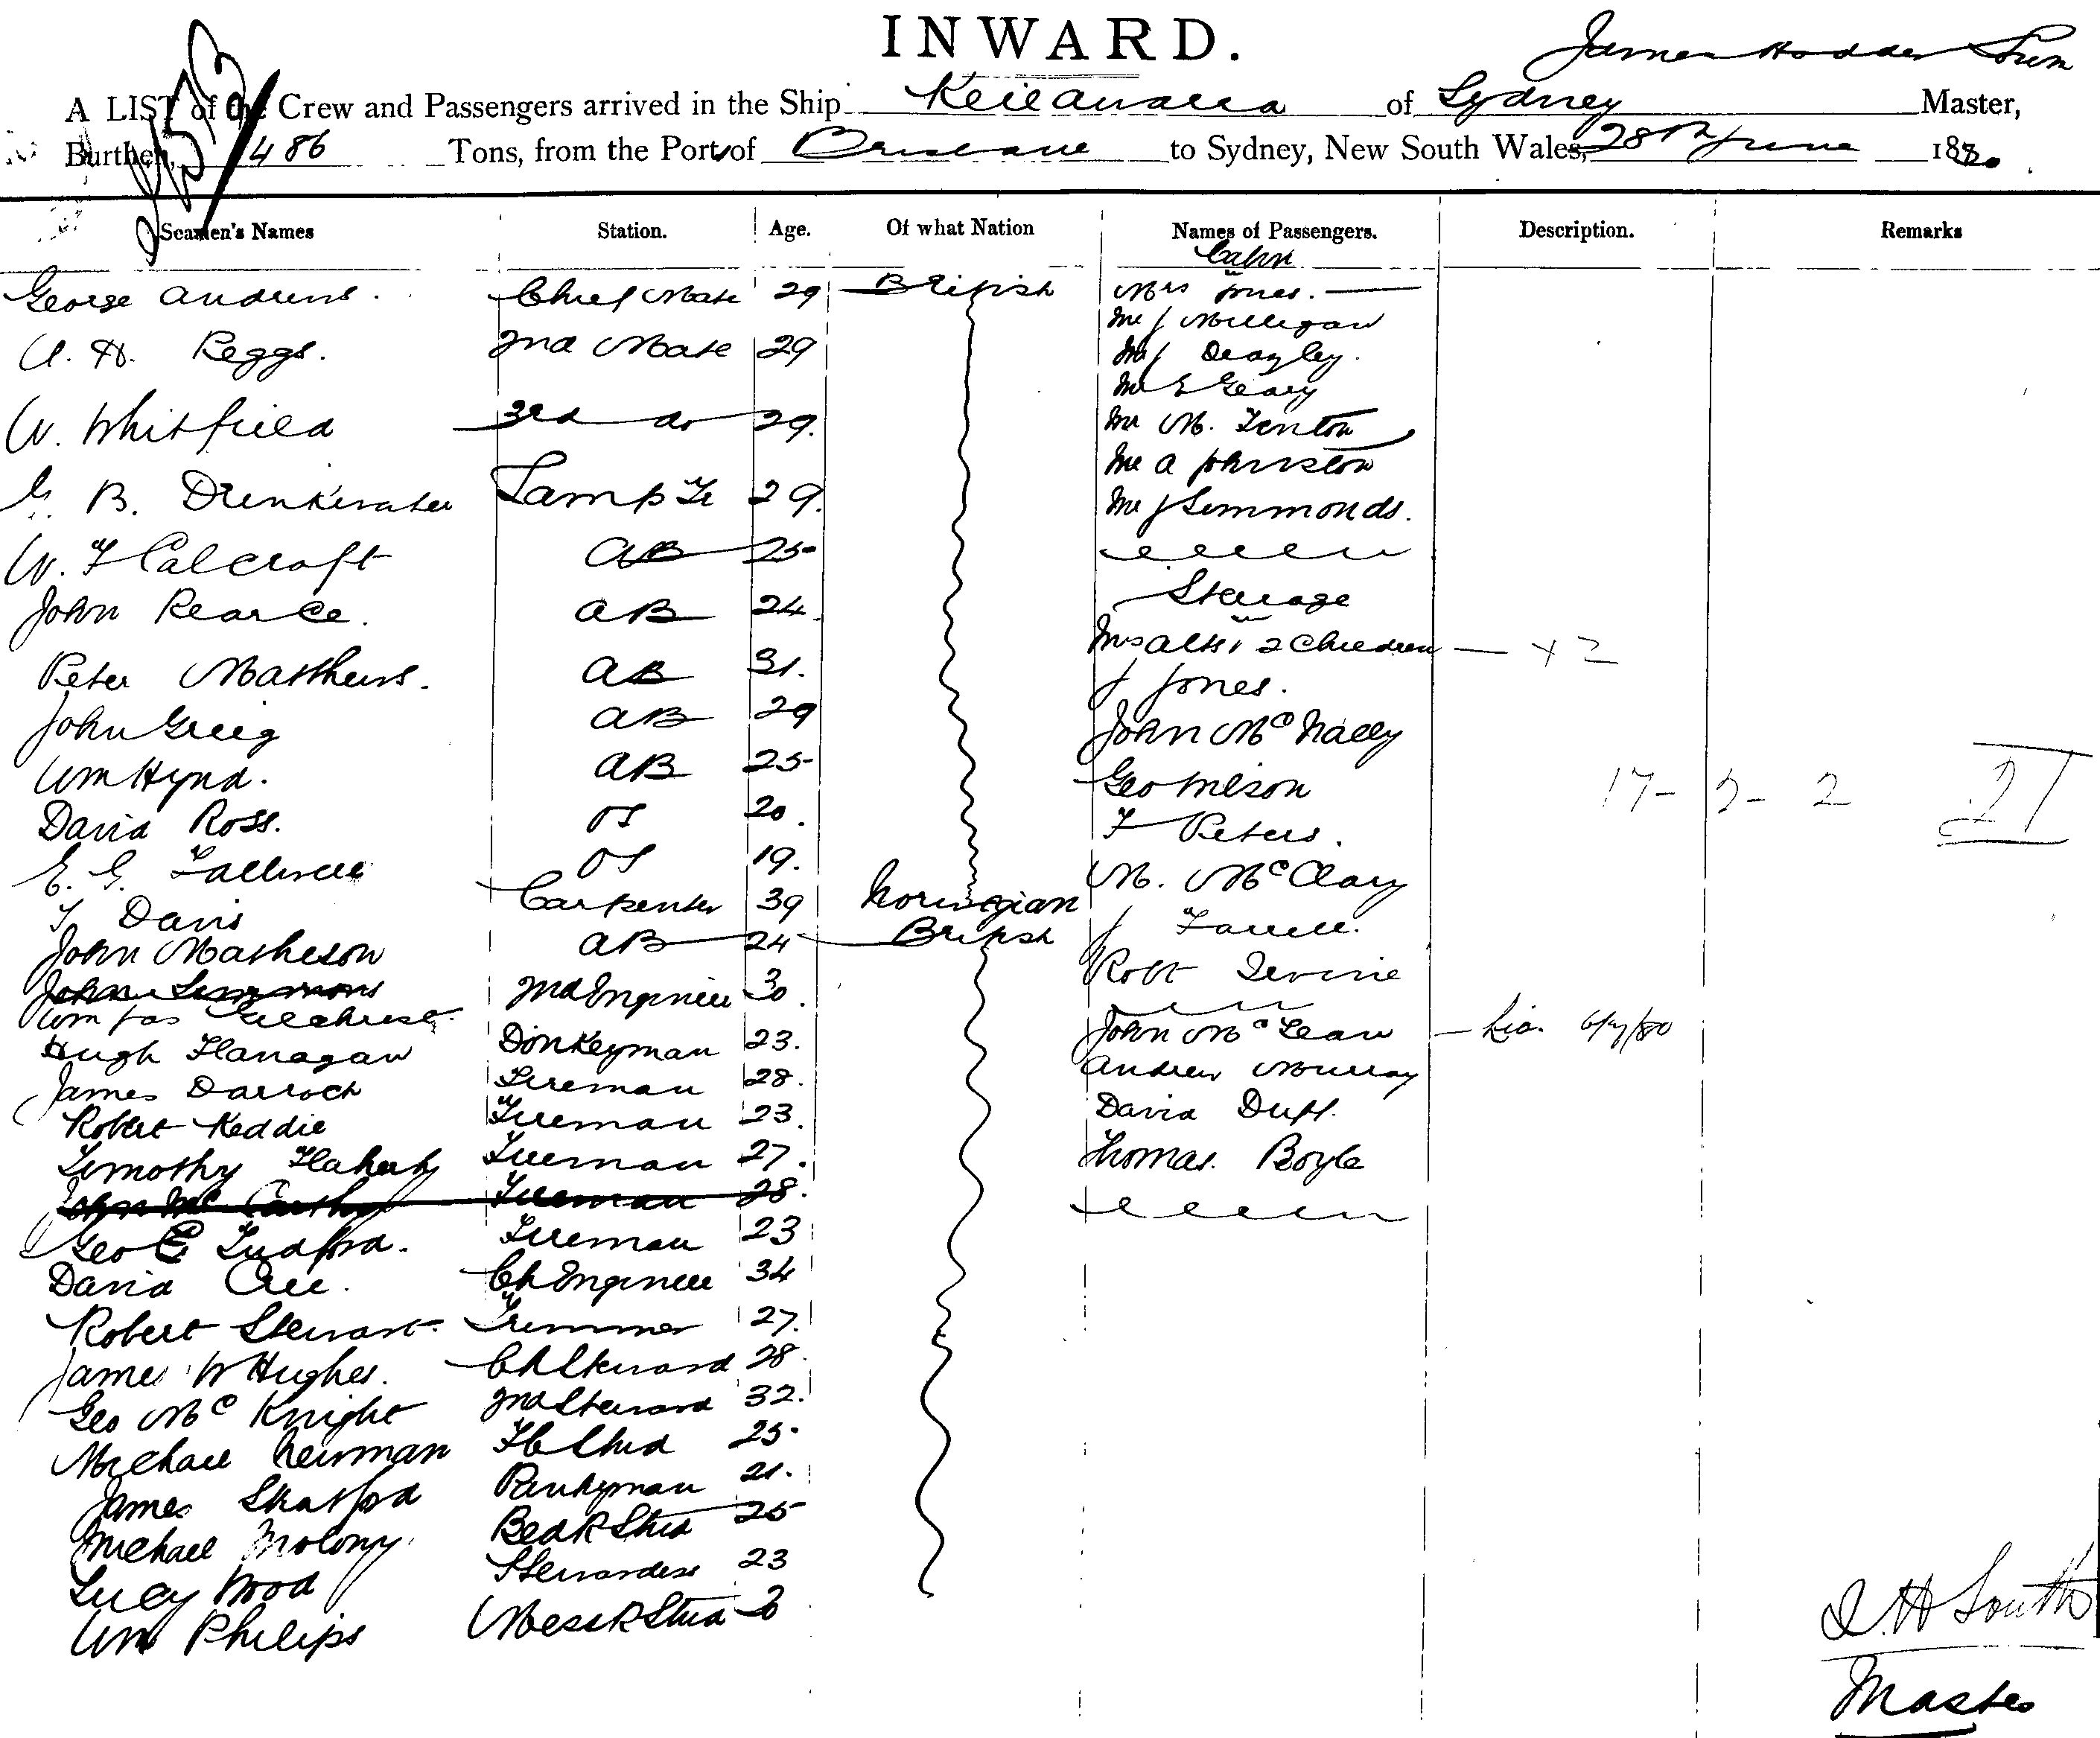 INWARD.
James Hodder
A LIST of the Crew and Passengers arrived in the Ship Keilawarra of Sydney Master,
Burthen, 486 Tons, from the Port of Brisbane to Sydney, New South Wales, 28th June 1880
Seamen's Names Station. Age. Of what Nation Names of Passengers. Description. Remarks
Cabin
George Andrews. Chief Mate 29 British Mrs Jones.
Mr J Milligan
A. H. Peggs. 2nd Mate 29 Mr J
Mr E Geary
W. Whitfield 3rd do 29. Mr M. Fenton
Mr A Johnston
G. B. Drinkwater Lamp Tr 29. Mr J Simmonds.
W. F Calcroft AB 25
John Pearce. AB 24 Steerage
Peter Matthews. AB 31. Mrs 2 Children + 2
J Jones.
John Greig AB 29 John McNally
Wm Hynd. AB 25 Geo Wilson 17 - 2 - 2 21
David Ross. OS 20. F Peters.
E. G. OS 19. M. McClary
T Davis Carpenter 39 Norwegian
John Matheson AB 24 British J Farrell.
John Simmons Robt Irvine
Wm Jas Gilchrist 2nd Engineer 30.
Hugh Flanagan Donkeyman 23. John McLean 80
James Darroch Fireman 28. Andrew Murray
Robert Keddie Fireman 23. David Duff.
Timothy Flaherty Fireman 27. Thomas. Boyle
John McCarthy Fireman 28.
Geo E Ludford. Fireman 23
David Cree. Ch Engineer 34
Robert Stewart. Trimmer 27.
James W Hughes. Ch Steward 28.
Geo McKnight 2nd Steward 32.
Michael Newman 25
James Stratford Pantryman 21.
Michael Molony. Bed R Stwd 25
Lucy Wood Stewardess 23
Wm Philips Mess R Stwd 20
South
Master